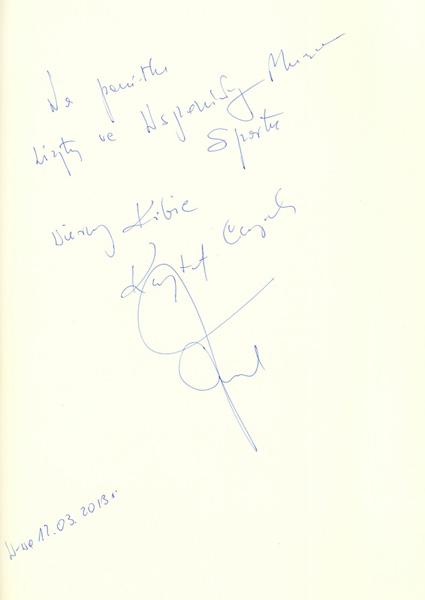 Na pamiątkę
wizyty we Wspaniałym Muzeum
Sportu
Wierny Kibic
Krzysztof
W-wa 12.03.2013 r.